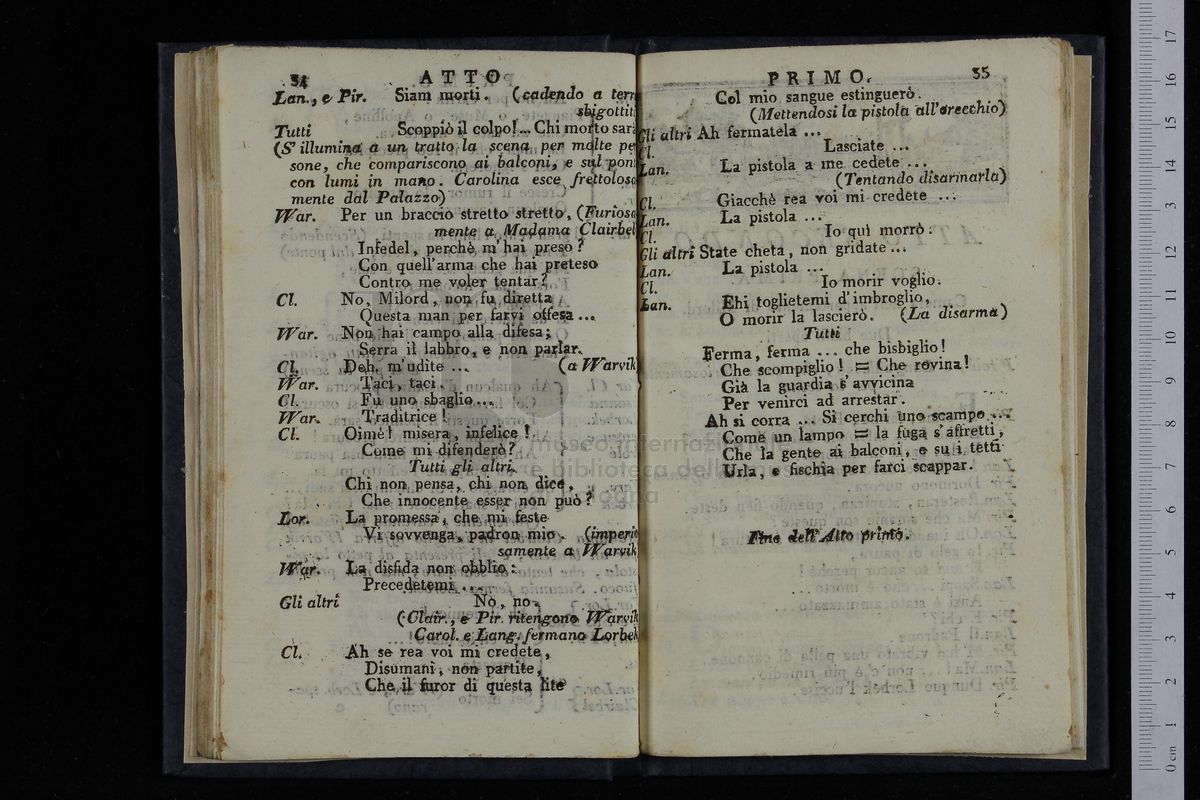 34 ATTO
Lan., e Pir. Siam morti. (cadendo a terr
sbigottit
Tutti Scoppiò il colpo!... Chi morto sarà
(S'illumina a un tratto la scena per molte pe
sone, che compariscono ai balconi, e sul pon
con lumi in mano. Carolina esce frettolosa
mente dal Palazzo)
War. Per un braccio stretto stretto, (Furiosa
mente a Madama Clairbel
Infedel, perchè m'hai preso?
Con quell'arma che hai preteso
Contro me voler tentar?
Cl. No, Milord, non fu diretta
Questa man per farvi offesa...
War. Non hai campo alla difesa;
Serra il labbro, e non parlar.
Cl. Deh, m'udite ... (a Warvik
War. Taci, taci.
Cl. Fu uno sbaglio...
War. Traditrice!
Cl. Oimè! misera, infelice!
Come mi difenderò?
Tutti gli altri.
Chi non pensa, chi non dice,
Che innocente esser non può?
Lor. La promessa, che mi feste
Vi sovvenga, padron mio. (imperio
samente a Warvik
War. La disfida non obblio:
Precedetemi ...
Gli altri No, no.
(Clair., e Pir. ritengono Warvik
Carol. e Lang. fermano Lorbek
Cl. Ah se rea voi mi credete,
Disumani, non partite,
Che il furor di questa lite
PRIMO. 35
Col mio sangue estinguerò.
(Mettendosi la pistola all'orecchio)
Gli altri Ah fermatela ...
Cl. Lasciate ...
Lan. La pistola a me cedete ...
(Tentando disarmarla)
Cl. Giacchè rea voi mi credete ...
Lan. La pistola ...
Cl. Io quì morrò.
Gli altri State cheta, non gridate ...
Lan. La pistola ...
Cl. Io morir voglio.
Lan. Ehi toglietemi d'imbroglio,
O morir la lascierò. (La disarma)
Tutti
Ferma, ferma ... che bisbiglio!
Che scompiglio! = Che rovina!
Già la guardia s'avvicina
Per venirci ad arrestar.
Ah si corra ... Si cerchi uno scampo ...
Come un lampo = la fuga s'affretti,
Che la gente ai balconi, e su i tetti
Urla, e fischia per farci scappar.
Fine dell'Atto primo.
museo internazi
e biblioteca della mu
ogna
0 cm 1 2 3 4 5 6 7 8 9 10 11 12 13 14 15 16 17